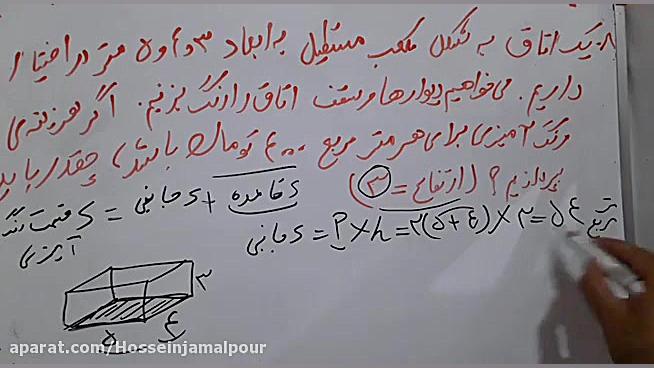 ۸. یک اتاق به شکل مکعب مستطیل به ابعاد ۳ و ۴ و ۵ متر در اختیار
داریم. می‌خواهیم دیوارها و سقف اتاق را رنگ بزنیم. اگر هزینه‌ی
رنگ آمیزی برای هر متر مربع ۴۰۰۰ تومان باشد، چقدر باید
بپردازیم؟ (ارتفاع = ۳)
S قسمت رنگ آمیزی = S جانبی + S قاعده
S جانبی = P × h = ۲(۵+۴) × ۳ = ۵۴ متر مربع
۳
۵
۴
aparat.com/Hosseinjamalpour